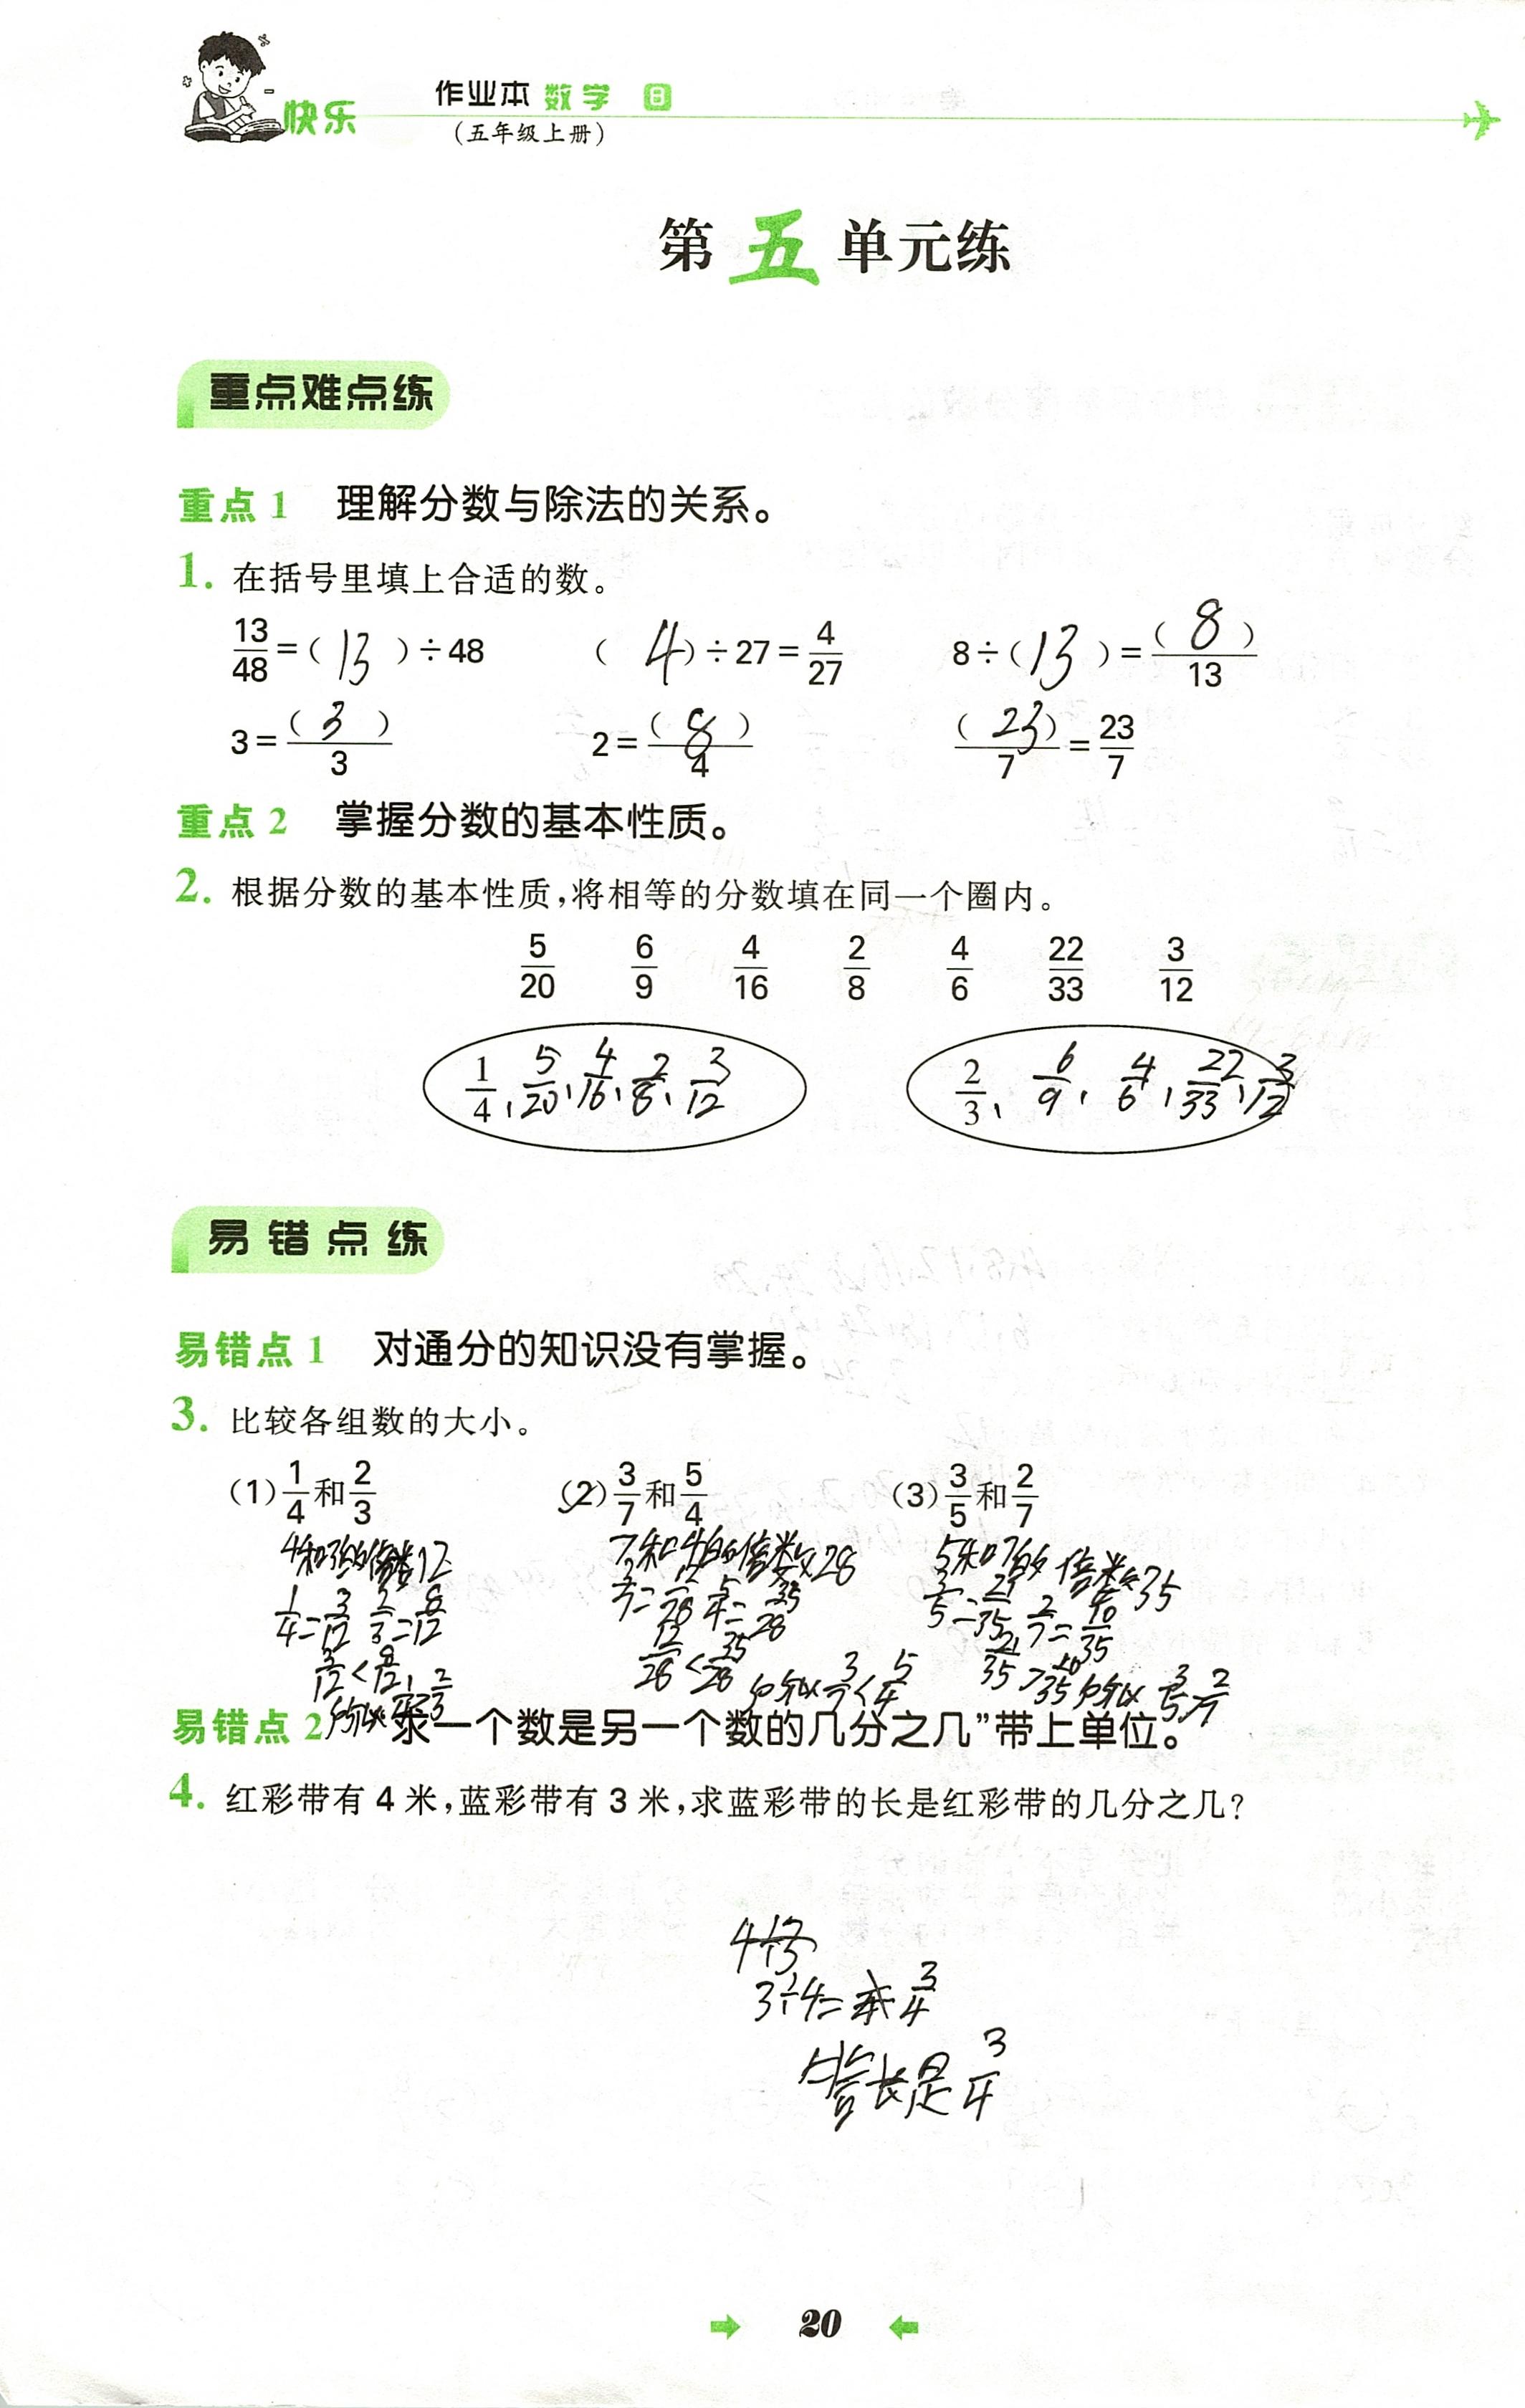 快乐
作业本 数学 B
(五年级上册)
第五单元练
重点难点练
重点1 理解分数与除法的关系。
1. 在括号里填上合适的数。
13/48=( 13 )÷48 ( 4 )÷27=4/27 8÷( 13 )=( 8 )/13
3=( 3 )/3 2=( 8 )/4 ( 23 )/7=23/7
重点2 掌握分数的基本性质。
2. 根据分数的基本性质,将相等的分数填在同一个圈内。
5/20 6/9 4/16 2/8 4/6 22/33 3/12
1/4、5/20、4/16、2/8、3/12 2/3、6/9、4/6、22/33、3/12
易错点练
易错点1 对通分的知识没有掌握。
3. 比较各组数的大小。
(1)1/4和2/3 (2)3/7和5/4 (3)3/5和2/7
4和3的倍数12 7和4的倍数28 5和7的倍数35
1/4=3/12 2/3=8/12 3/7=12/28 5/4=35/28 3/5=21/35 2/7=10/35
3/12<8/12, 12/28<35/28 所以3/7<5/4 21/35>10/35 所以3/5>2/7
所以 2/3
易错点2 求一个数是另一个数的几分之几”带上单位。
4. 红彩带有4米,蓝彩带有3米,求蓝彩带的长是红彩带的几分之几?
3÷4= 3/4
答长是3/4
20